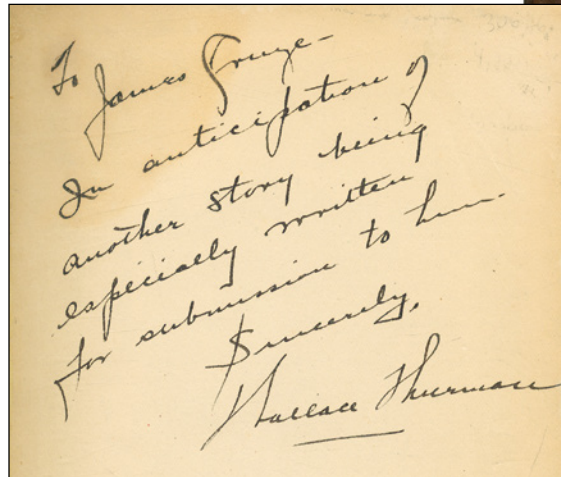 To
James Cruze-
In anticipation of
another story being
especially written
for submission to him.
Sincerely,
Wallace Thurman